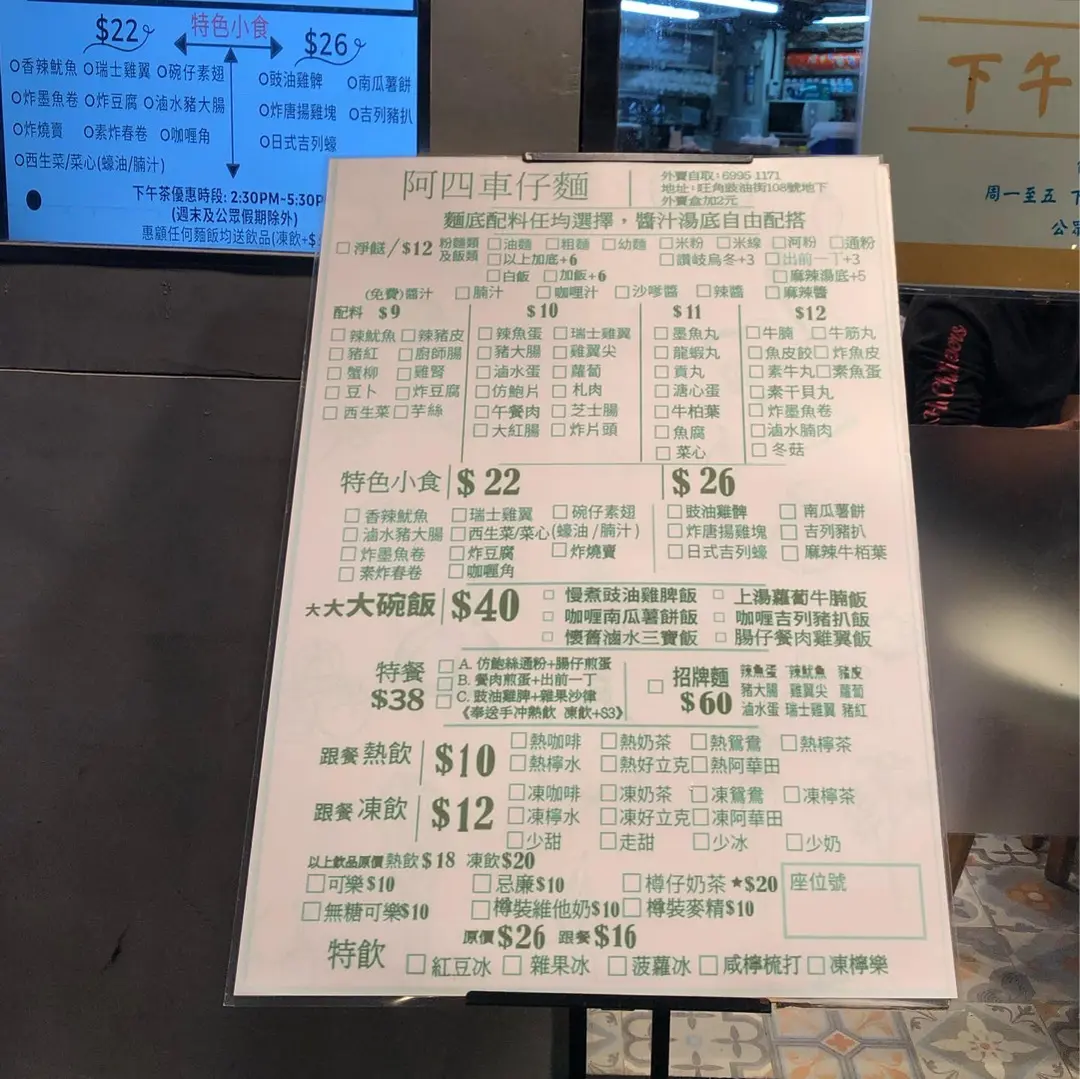 $22 特色小食 $26
O香辣魷魚 O瑞士雞翼 O碗仔素翅 O豉油雞髀 O南瓜薯餅
O炸墨魚卷 O炸豆腐 O滷水豬大腸 O炸唐揚雞塊 O吉列豬扒
O炸燒賣 O素炸春卷 O咖喱角 O日式吉列蠔
O西生菜/菜心(蠔油/腩汁)
下午茶優惠時段: 2:30PM-5:30P
(週末及公眾假期除外)
惠顧任何麵飯均送飲品(凍飲+$
下午
周一至五 下
公眾
阿四車仔麵
外賣自取：6995 1171
地址：旺角豉油街108號地下
外賣盒加2元
麵底配料任均選擇，醬汁湯底自由配搭
淨餸/$12 粉麵類及飯類 油麵 粗麵 幼麵 米粉 米線 河粉 通粉
以上加底+6 讚岐烏冬+3 出前一丁+3
白飯 加飯+6 麻辣湯底+5
(免費)醬汁 腩汁 咖哩汁 沙嗲醬 辣醬 麻辣醬
配料 $9 $10 $11 $12
辣魷魚 辣豬皮 辣魚蛋 瑞士雞翼 墨魚丸 牛腩 牛筋丸
豬紅 廚師腸 豬大腸 雞翼尖 龍蝦丸 魚皮餃 炸魚皮
蟹柳 雞腎 滷水蛋 蘿蔔 貢丸 素牛丸 素魚蛋
豆卜 炸豆腐 仿鮑片 札肉 溏心蛋 素干貝丸
西生菜 芋絲 午餐肉 芝士腸 牛柏葉 炸墨魚卷
大紅腸 炸片頭 魚腐 滷水腩肉
菜心 冬菇
特色小食 $22 $26
香辣魷魚 瑞士雞翼 碗仔素翅 豉油雞髀 南瓜薯餅
滷水豬大腸 西生菜/菜心(蠔油/腩汁) 炸唐揚雞塊 吉列豬扒
炸墨魚卷 炸豆腐 炸燒賣 日式吉列蠔 麻辣牛栢葉
素炸春卷 咖喱角
大大大碗飯 $40
慢煮豉油雞脾飯 上湯蘿蔔牛腩飯
咖喱南瓜薯餅飯 咖喱吉列豬扒飯
懷舊滷水三寶飯 腸仔餐肉雞翼飯
特餐 $38
A. 仿鮑絲通粉+腸仔煎蛋
B. 餐肉煎蛋+出前一丁
C. 豉油雞脾+雜果沙律
《奉送手冲熱飲 凍飲+$3》
招牌麵 $60
辣魚蛋 辣魷魚 豬皮
豬大腸 雞翼尖 蘿蔔
滷水蛋 瑞士雞翼 豬紅
跟餐 熱飲 $10
熱咖啡 熱奶茶 熱鴛鴦 熱檸茶
熱檸水 熱好立克 熱阿華田
跟餐 凍飲 $12
凍咖啡 凍奶茶 凍鴛鴦 凍檸茶
凍檸水 凍好立克 凍阿華田
少甜 走甜 少冰 少奶
以上飲品原價 熱飲$18 凍飲$20
可樂$10 忌廉$10 樽仔奶茶★$20 座位號
無糖可樂$10 樽裝維他奶$10 樽裝麥精$10
特飲 原價$26 跟餐$16
紅豆冰 雜果冰 菠蘿冰 咸檸梳打 凍檸樂